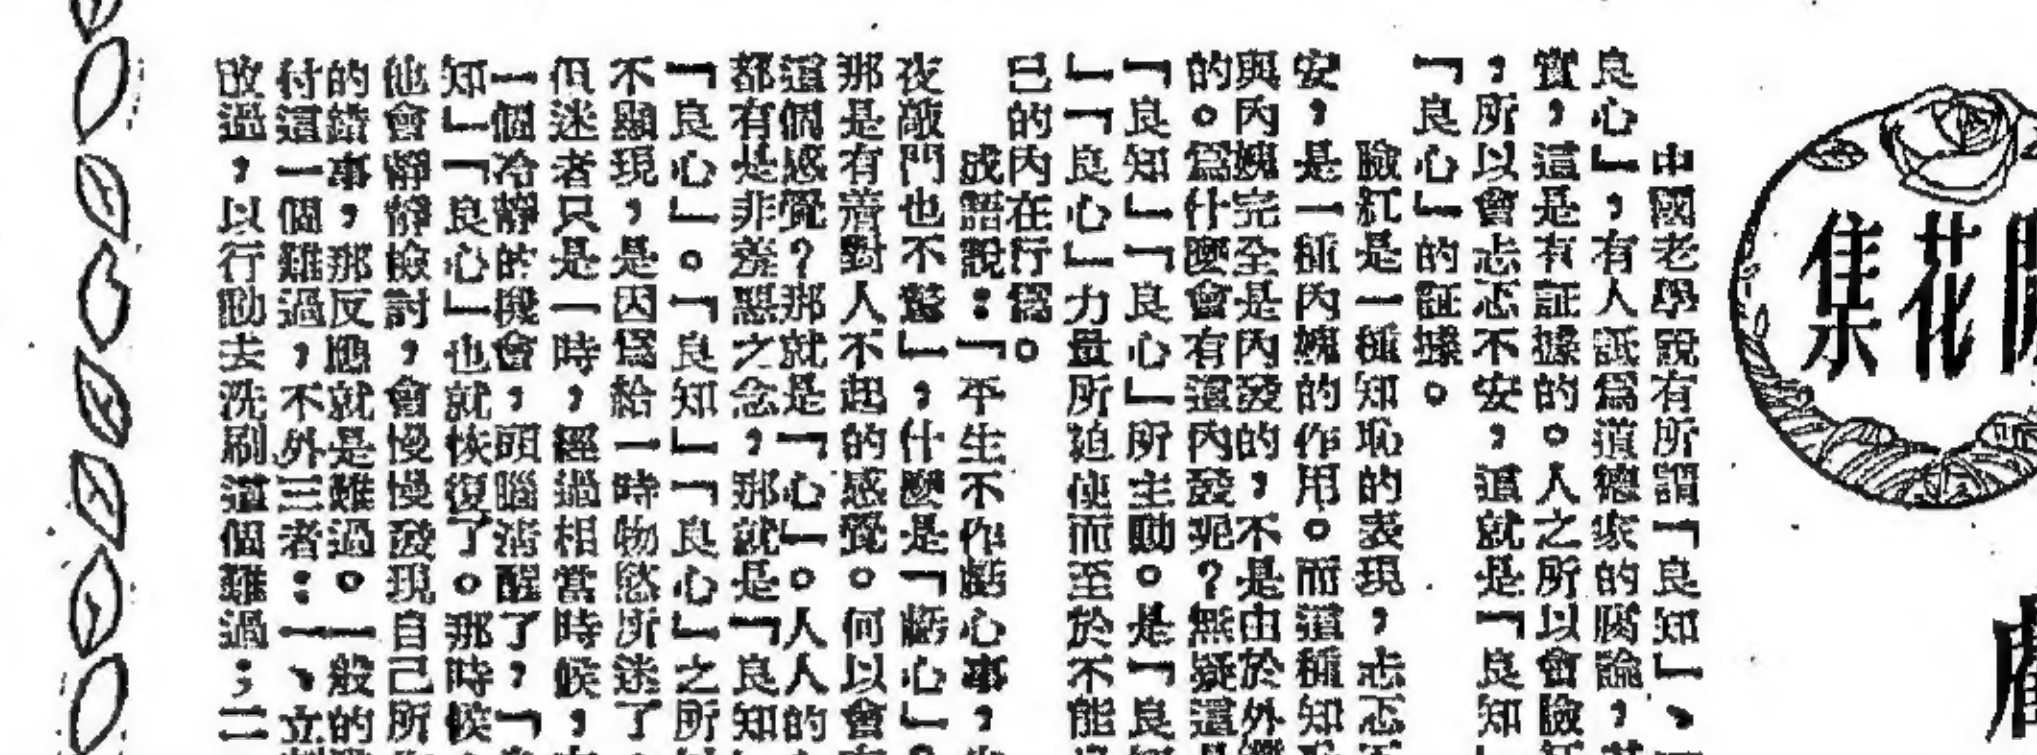 集花開
中國老學說有所謂「良知」、
良心」，有人詆爲道德家的腐論，其
實，這是有証據的。人之所以會臉紅
，所以會忐忑不安，這就是「良知」
「良心」的証據。
臉紅是一種知恥的表現，忐忑不
安，是一種內媿的作用。而這種知恥
與內媿完全是內發的，不是由於外
的。爲什麼會有這內發呢？無疑這是
「良知」「良心」所主動。是「良知
」「良心」力量所迫使而至於不能
已的內在行爲。
成語說：「平生不作虧心事，
夜敲門也不驚」，什麼是「虧心」？
那是有着對人不起的感覺。何以會有
這個感覺？那就是「心」。人人的
都有是非羞惡之念，那就是「良知」
「良心」。「良知」「良心」之所
不顯現，是因爲給一時物慾所迷了
但迷者只是一時，經過相當時候，
一個冷靜的機會，頭腦清醒了，「
知」「良心」也就恢復了。那時候
他會靜靜檢討，會慢慢發現自己所
的錯事，那反應就是難過。一般的
付這一個難過，不外三者：一、立
改過，以行動去洗刷這個難過；二